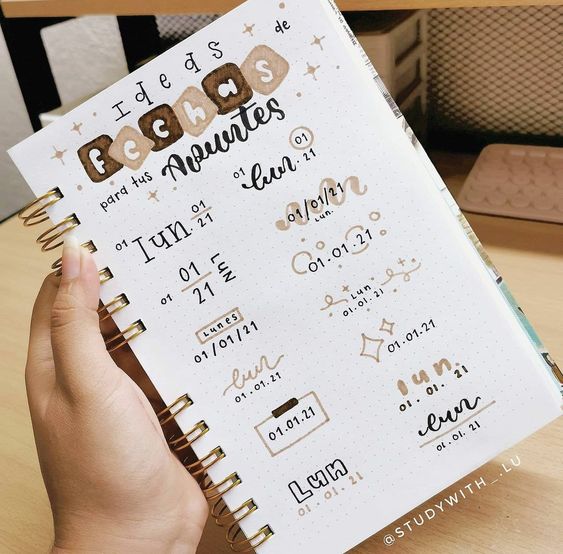 Ideas de
Fechas
para tus Apuntes
01 lun 01 21
01 lun. 01 . 21
01 01 21 LUN
Lunes
01/01/21
lun
01.01.21
01.01.21
Lun
01.01.21
01/01/21
Lun.
01.01.21
Lun
01.01.21
01.01.21
lun.
01.01.21
lun
01.01.21
@STUDYWITH_.LU